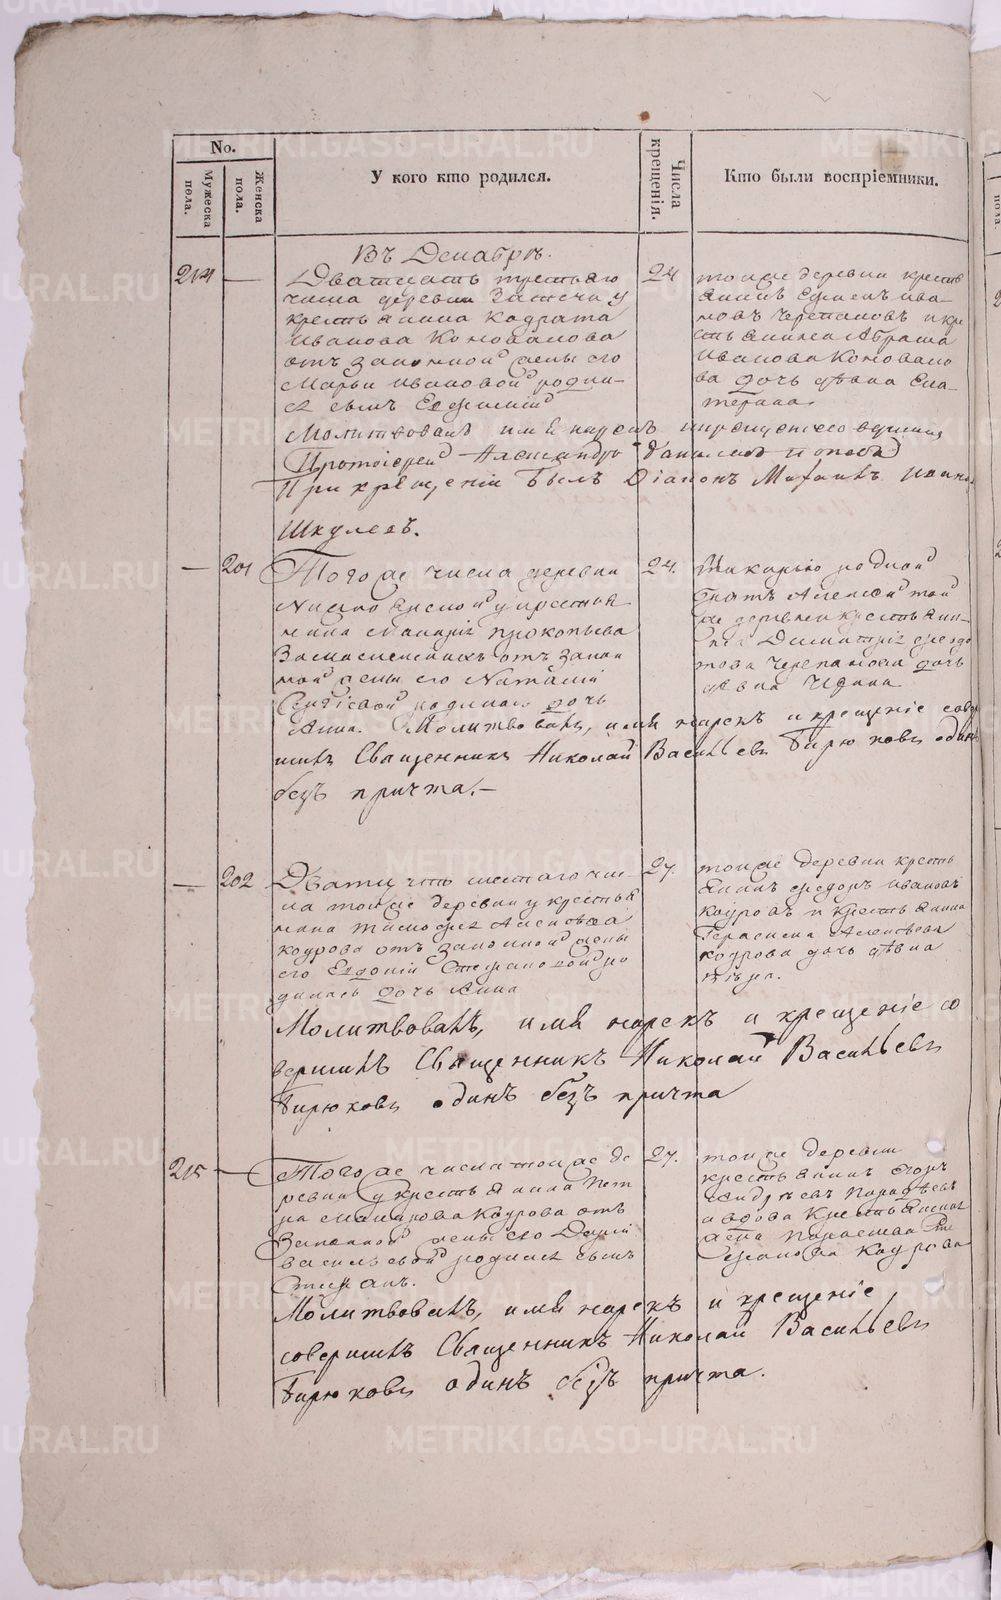 No.
Мужеска пола.
Женска пола.
У кого кто родился.
Числа крещенія.
Кто были воспріемники.
Въ Декабрѣ.
214 —
Дватцать третьяго
числа деревни Затечи у
крестьянина Кодрата
Иванова Коновалова
отъ законной жены его
Марьи Ивановой роди-
ся сынъ Евфимій
24
тояже деревни кресть
янинъ Ефимъ Ива-
новъ Черепановъ и кре
стьянина Абрама
Иванова Коновало
ва дочь дѣвка Ека-
терина.
Молитвовалъ имя нарекъ и крещеніе
Протоіерей Александръ
При крещеніи былъ Діаконъ Михаилъ
Шкулевъ.
— 201
Тогоже числа деревни
у крестья
нина Макарія Прокопьева
отъ закон
ной жены его Наталіи
родилась дочь
Анна. Молитвовалъ, имя нарекъ и крещеніе совер
шилъ Священникъ Николай Васильевъ Бирюковъ одинъ
безъ причта. —
24.
Макарію родной
братъ Алексей той
же деревни крестьянин-
Димитрія Федо
това Черепанова дочь
дѣвка
— 202
Дватцать шестаго чис-
ла тояже деревни у крестья
нина Тимофея Алексѣева
Кодрова отъ законной жены
его Евдокіи Степановой ро
дилась дочь Анна
27.
тояже деревни кресть
янинъ Федоръ Ивановъ
Кодровъ и крестьянина
Герасима Алексѣева
Кодрова дочь дѣвка
Молитвовалъ, имя нарекъ и крещеніе со
вершилъ Священникъ Николай Васильевъ
Бирюковъ одинъ безъ причта
215 —
Тогоже числа тояже де
ревни у крестьянина Пет
ра Макарова Кодрова отъ
законной жены его Дарьи
Васильевой родился сынъ
Стефанъ.
27.
тояже деревни
крестьянинъ Егоръ
и вдова крестьянская
жена Параскева Сте
фанова Кодрова
Молитвовалъ, имя нарекъ и крещеніе,
совершилъ Священникъ Николай Васильевъ
Бирюковъ одинъ безъ причта.
METRIKI.GASO-URAL.RU